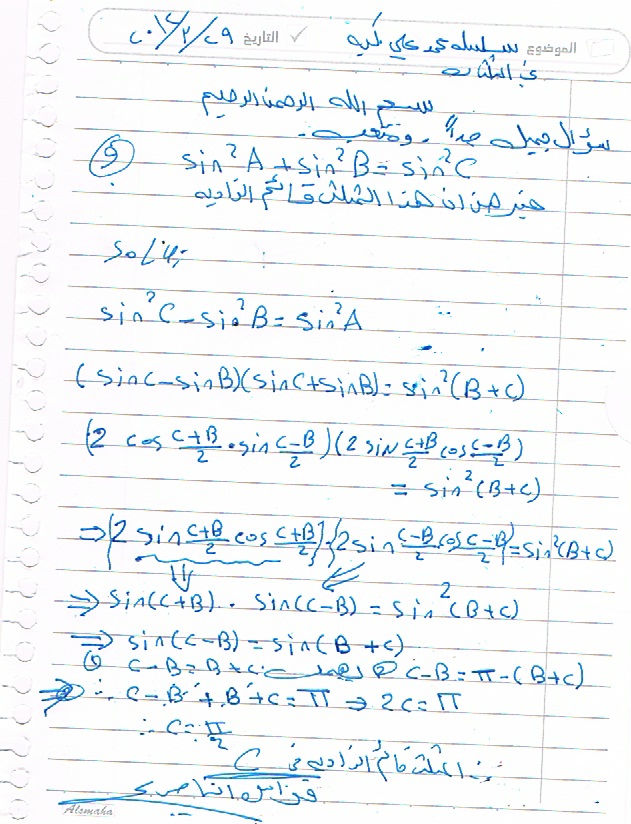 الموضوع سلسلة عن على التاريخ ٢٠١٤/٢/٢٩
بسم الله الرحمن الرحيم
سؤال جميل جداً
sin²A + sin²B = sin²C
ان هذا المثلث قائم الزاويه
sin²C - sin²B = sin²A
(sinC-sinB)(sinC+sinB) = sin²(B+C)
(2 cos C+B/2 . sin C-B/2)(2 sin C+B/2 cos C-B/2)
= sin²(B+C)
⇒ (2 sin C+B/2 cos C+B/2).(2 sin C-B/2 cos C-B/2) = sin²(B+C)
⇒ sin(C+B) . sin(C-B) = sin²(B+C)
⇒ sin(C-B) = sin(B+C)
① C-B = B+C ② C-B = π-(B+C)
⇒ ∴ C-B+B+C = π → 2C = π
∴ C = π/2
المثلث قائم الزاويه في C
فراس الناصري
Alsmaha